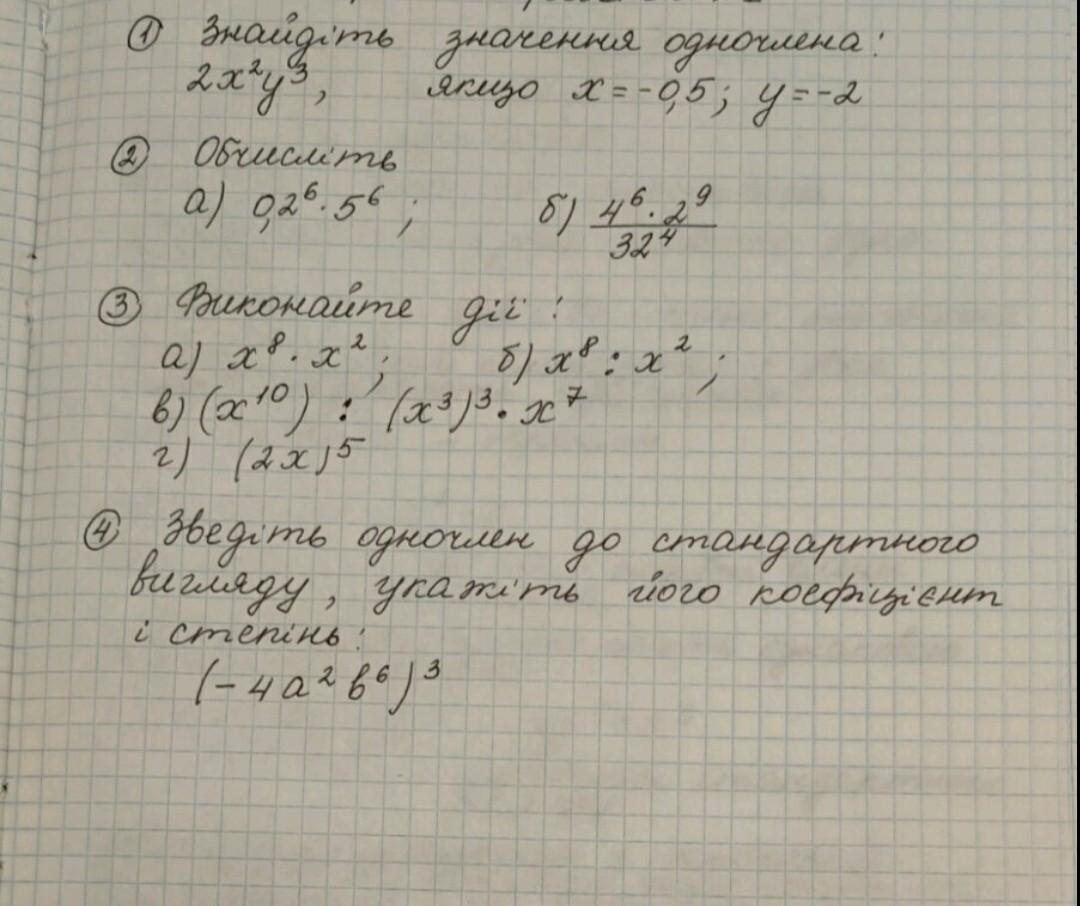 ① Знайдіть значення одночлена:
2x²y³, якщо x=-0,5; y=-2
② Обчисліть
а) 0,2⁶·5⁶; б) 4⁶·2⁹/32⁴
③ Виконайте дії:
а) x⁸·x²; б) x⁸:x²;
в) (x¹⁰) : (x³)³·x⁷
г) (2x)⁵
④ Зведіть одночлен до стандартного
вигляду, укажіть його коефіцієнт
і степінь:
(-4a²b⁶)³